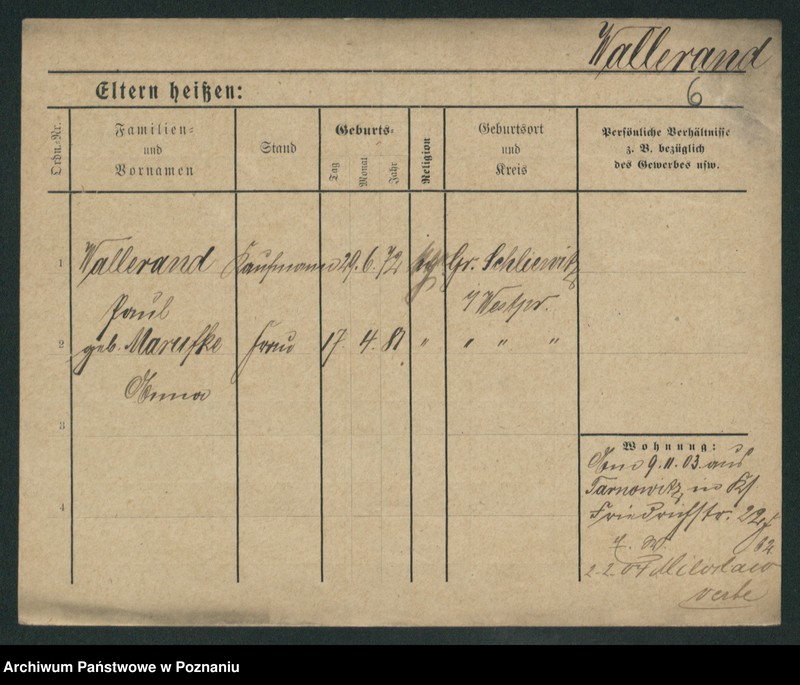 Wallerand
6
Eltern heißen:
Ordn.-Nr.
Familien-
und
Vornamen
Stand
Geburts-
Tag
Monat
Jahr
Religion
Geburtsort
und
Kreis
Persönliche Verhältnisse
z. B. bezüglich
des Gewerbes usw.
1
Wallerand Kaufmann 29. 6. 72 Gr. Schliewitz
Paul
Westpr.
2
geb. Marufke Frau 17. 4. 81 " " " "
Anna
3
4
Wohnung:
9. 11. 03 aus
Tarnowitz in
Friedrichstr. 22
2. 2. 04 Miloslaw